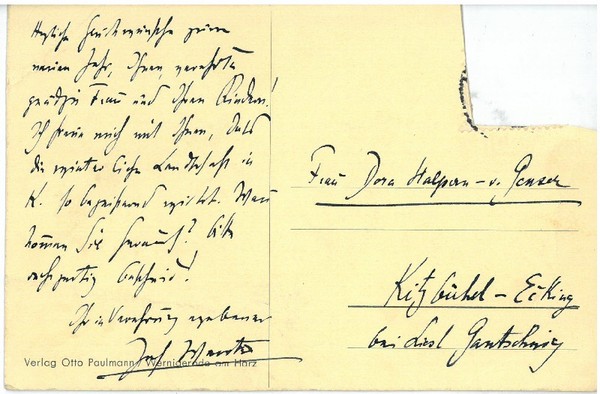 Herzliche Glückwünsche zum
neuen Jahr, Ihnen, verehrte
gnädige Frau und Ihren Kindern!
Ich freue mich mit Ihnen, daß
die winterliche Landschaft in
K. so begeisternd wirkt. Wann
kommen Sie herauf? Bitte
rechtzeitig Bescheid!
Ihr in Verehrung ergebener
Verlag Otto Paulmann, Wernigerode am Harz
Frau Dora Halpern-v.
Kitzbühel - Ecking
bei Liesl Gantschnig